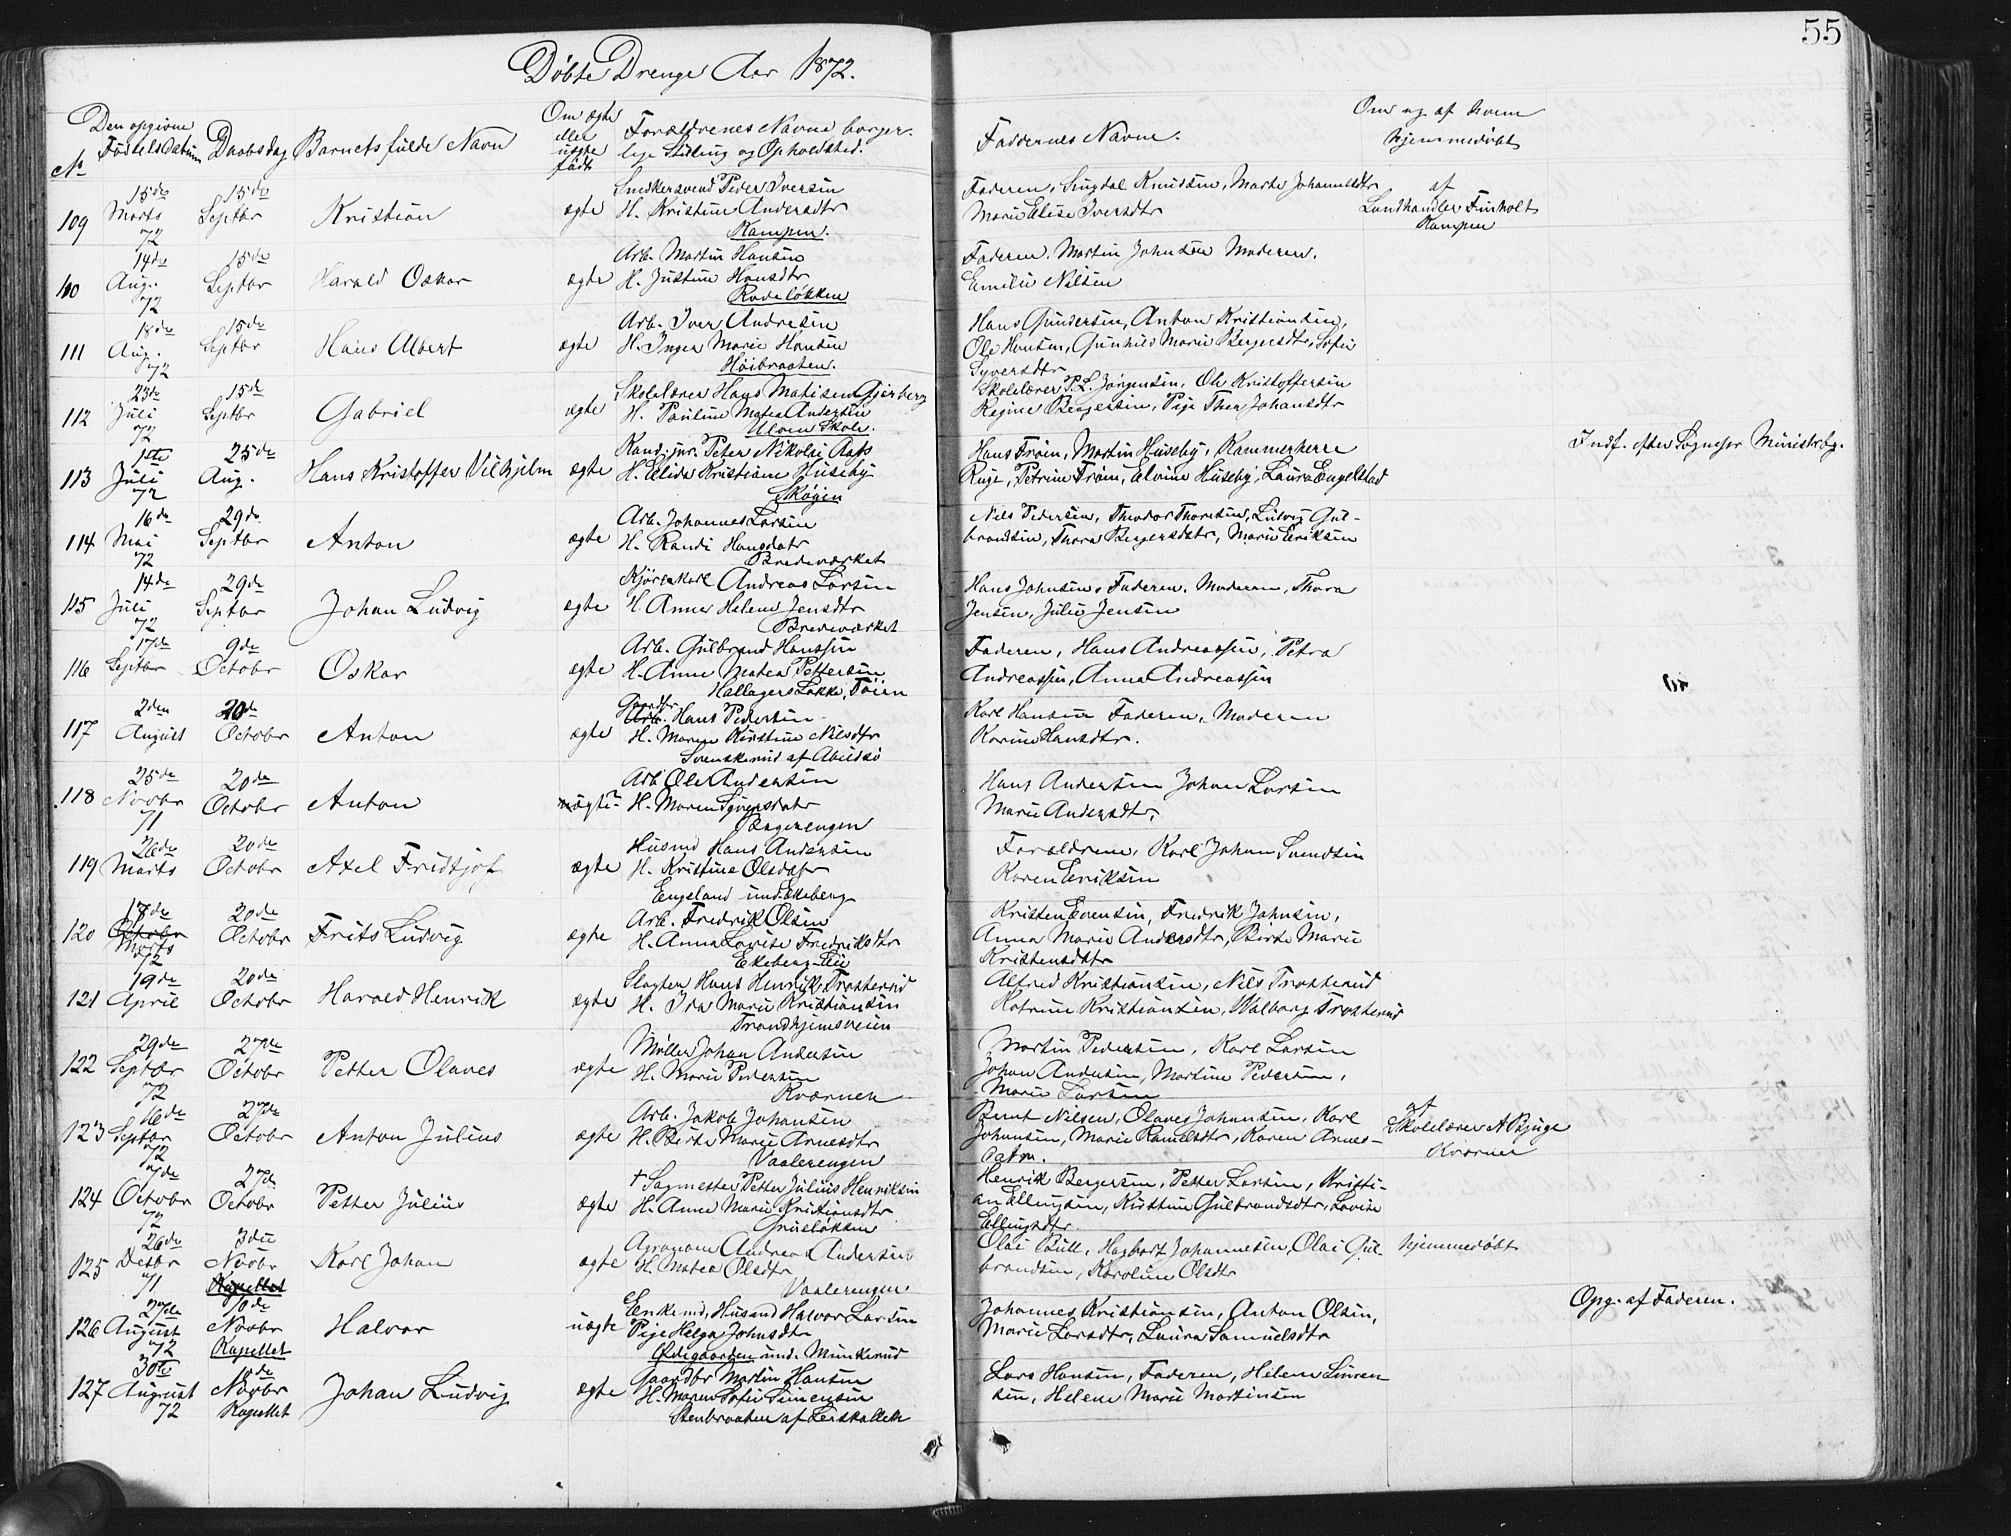 55
Døbte Drenge Aar 1872.
No
Den opgivne Fødselsdatum
Daabsdag
Barnets fulde Navn
Om ægte eller uægte født
Forældrenes Navne borgerlige Stilling og Opholdsted.
Faddernes Navne.
Om og af hvem hjemmedøbt
109 15de Marts 72 15de Septbr Kristian ægte Snedkersvend Peder Iversen
H. Kristine Andersdtr
Kampen.
Faderen, Knudsen, Marte Johannesdtr
Marie Elise Iversdtr
af Landhandler Finholt Kampen
110 14de Aug. 72 15de Septbr Harald Oskar ægte Arb. Martin Hansen
H. Justine Hansdtr
Rodeløkken
Faderen. Martin Johnsen Moderen.
Emilie Nilsen
111 18de Aug. 72 15de Septbr Hans Albert ægte Arb. Iver Andresen
H. Inger Marie Hansen
Høibraaten.
Hans Gundersen, Anton Kristiansen,
Ole Hansen, Gunhild Marie Bergersdtr, Sofie
Syversdtr
112 23de Juli 72 15de Septbr Gabriel ægte Skolelærer Hans Matisen Gjerberg
H. Pauline Matea Andersen
Ulven Skole.
Skolelærer P. L. Jørgensen, Ole Kristoffersen
Regine Bergersen, Pige Thea Johansdtr
113 1ste Juli 72 25de Aug. Hans Kristoffer Vilhjelm ægte Kand. jur. Peter Nikolai Aass
H. Elida Kristiane Huseby
Skøien
Hans Frøen, Martin Huseby, Kammerherre
Ruge, Petrine Frøen, Elvine Huseby, Laura Engelstad
Indf. efter Sognepr Ministbog.
114 16de Mai 72 29de Septbr Anton ægte Arb. Johannes Larsen
H. Randi Hansdatr
Bredeværket
Nils Pedersen, Theodor Thoresen, Ludvig Gul-
brandsen, Thora Bergersdatr, Marie Eriksen
115 14de Juli 72 29de Septbr Johan Ludvig ægte Kjørekarl Andreas Larsen
H. Anne Helene Jensdtr
Bredeværket
Hans Johnsen, Faderen. Moderen, Thora
Jensen, Julie Jensen
116 17de Septbr 9de Octobr Oskar ægte Arb. Gulbrand Hanssen
H. Anne Matea Pettersen
Hallagers Løkke, Tøien
Faderen, Hans Andreassen, Petra
Andreassen, Anna Andreassen
117 2den August 20de Octobr Anton ægte Gaardbr. Hans Pedersen
H. Maren Kirstine Nilsdtr
Svenskerud af Abildsø
Karl Hansen Faderen, Moderen
Karine Hansdtr.
118 25de Novbr 71 20de Octobr Anton ægte Arb Ole Andersen
H. Maren Syversdatr
Bagerengen
Hans Andersen Johan Larsen
Marie Andersdtr,
119 26de Marts 20de Octobr Axel Fridtjof ægte Husmd Hans Andersen
H. Kristine Olsdatr
Engeland und. Ekeberg
Forældrene, Karl Johan Svendsen
Karen Eriksen
120 18de Octobr Marts 72 20de Octobr Frits Ludvig ægte Arb. Fredrik Olsen
H. Anna Lovise Fredriksdtr
Ekeberg Lie
Kristen Evensen, Fredrik Johnsen,
Anna Marie Andersdtr, Birte Marie
Kristensdtr
121 19de April 20de Octobr Harald Henrik ægte Slagter Hans Henrik Trosterud
H. Ida Marie Kristiansen
Trondhjemsveien
Alfred Kristiansen, Nils Trosterud
Katrine Kristiansen, Walborg Trosterud
122 29de Septbr 72 27de Octobr Petter Olaves ægte Møller Johan Andersen
H. Marie Pedersen
Kværnen
Martin Pedersen, Karl Larsen
Johan Andersen, Martine Pedersen,
Marie Larsen
123 16de Septbr 72 27de Octobr Anton Julius ægte Arb. Jakob Johansen
H. Birte Marie Arnesdtr
Vaalerengen
Bernt Nilsen, Olaves Johansen, Karl
Johansen, Marie Ramelsdtr, Karen Arnes-
datr.
af Skolelærer A Bjuge Kværner
124 7de Octobr 72 27de Octobr Petter Julius ægte † Sagmester Petter Julius Henriksen
H. Anne Marie Kristiansdtr
Grueløkken
Henrik Bergersen, Petter Larsen, Kristi-
an Ellingsen, Kirstine Gulbrandsdtr, Lovise
Ellingsdtr
125 26de Decbr 71 3die Novbr Kapellet Karl Johan ægte Agronom Andreas Andersen
H. Matea Olsdtr
Vaalerengen
Olai Bull, Hagbart Johannesen, Olai Gul-
brandsen, Karoline Olsdtr
hjemmedøbt
126 27de August 72 10de Novbr Kapellet Halvor uægte Enkemd, Husmd Halvor Larsen
Pige Helga Johnsdtr
Ødegaarden und. Munkerud
Johannes Kristiansen, Anton Olsen,
Marie Larsdtr, Laura Samuelsdtr
Opg. af Faderen.
127 30te August 72 10de Novbr Kapellet Johan Ludvig ægte Gaardbr Martin Hansen
H. Maren Sofie Simensen
Stenbraaten af Leirskallen
Lars Hansen, Faderen, Helene Simen-
sen, Helene Marie Martinsen